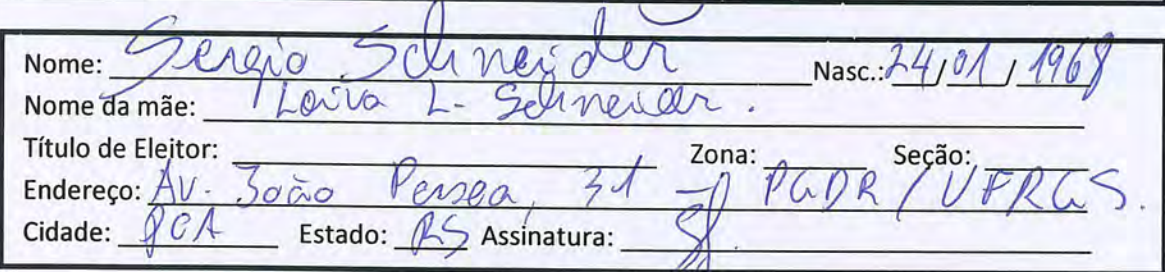 Nome: Sergio Schneider Nasc.: 24/01/1968
Nome da mãe: Loiva L. Schneider.
Título de Eleitor: Zona: Seção:
Endereço: Av. João Pessoa, 31 - PGDR / UFRGS.
Cidade: POA Estado: RS Assinatura: